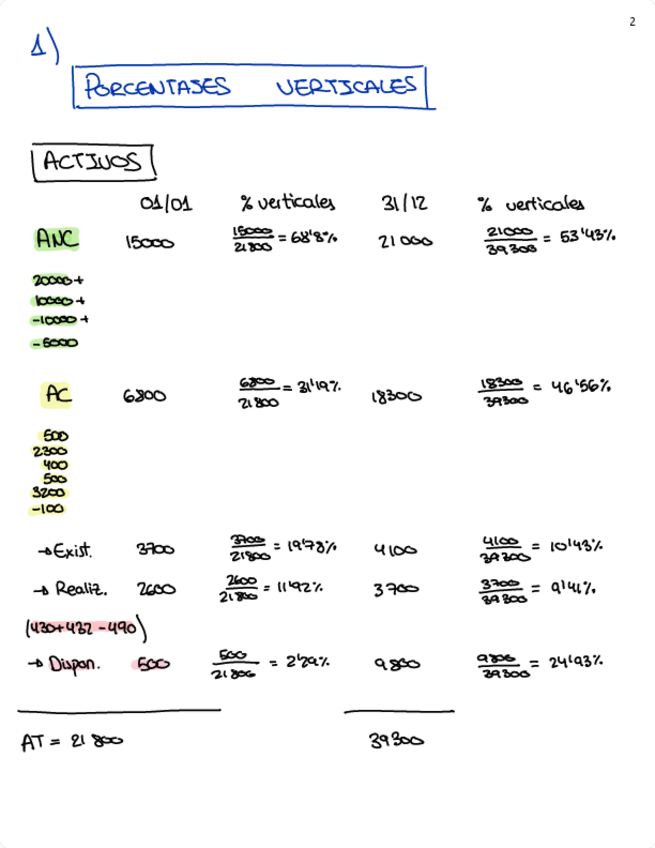 2
1)
PORCENTAJES VERTICALES
ACTIVOS
01/01 % verticales 31/12 % verticales
ANC 15000 15000/21800 = 68'8% 21000 21000/39300 = 53'43%
20000+
10000+
-10000+
-5000
AC 6800 6800/21800 = 31'19% 18300 18300/39300 = 46'56%
500
2300
400
500
3200
-100
→Exist. 3700 3700/21800 = 19'78% 4100 4100/39300 = 10'43%
→ Realiz. 2600 2600/21800 = 11'92% 3700 3700/39300 = 9'41%
(430+432-490)
→ Dispon. 500 500/21800 = 2'29% 9800 9800/39300 = 24'93%
AT = 21800 39300